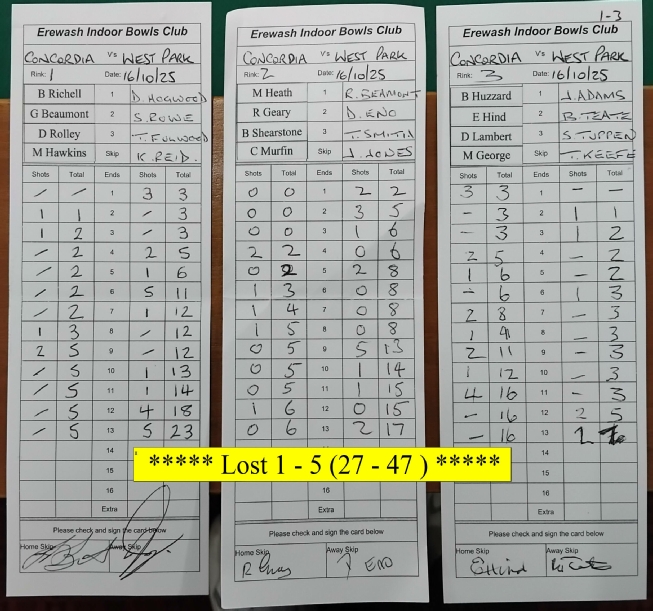 Erewash Indoor Bowls Club
CONCORDIA Vs WEST PARK
Rink: 1 Date: 16/10/25
B Richell 1 D. HOGWOOD
G Beaumont 2 S. ROWE
D Rolley 3 T. FULWOOD
M Hawkins Skip K. REID.
Shots Total Ends Shots Total
/ / 1 3 3
1 1 2 / 3
1 2 3 / 3
/ 2 4 2 5
/ 2 5 1 6
/ 2 6 5 11
/ 2 7 1 12
1 3 8 / 12
2 5 9 / 12
/ 5 10 1 13
/ 5 11 1 14
/ 5 12 4 18
/ 5 13 5 23
14
16
Extra
Please check and sign the card below
Home Skip Away Skip
Erewash Indoor Bowls Club
CONCORDIA Vs WEST PARK
Rink: 2 Date: 16/10/25
M Heath 1 R. BEAMONT
R Geary 2 D. ENO
B Shearstone 3 T. SMITH
C Murfin Skip J. JONES
Shots Total Ends Shots Total
0 0 1 2 2
0 0 2 3 5
0 0 3 1 6
2 2 4 0 6
0 2 5 2 8
1 3 6 0 8
1 4 7 0 8
1 5 8 0 8
0 5 9 5 13
0 5 10 1 14
0 5 11 1 15
1 6 12 0 15
0 6 13 2 17
16
Extra
Please check and sign the card below
Home Skip Away Skip
ENO
1-3
Erewash Indoor Bowls Club
CONCORDIA Vs WEST PARK
Rink: 3 Date: 16/10/25
B Huzzard 1 J. ADAMS
E Hind 2
D Lambert 3
M George Skip T. KEEFE
Shots Total Ends Shots Total
3 3 1 - -
- 3 2 1 1
- 3 3 1 2
2 5 4 - 2
1 6 5 - 2
- 6 6 1 3
2 8 7 - 3
1 9 8 - 3
2 11 9 - 3
1 12 10 - 3
4 16 11 - 3
- 16 12 2 5
- 16 13 2
14
15
16
Extra
Please check and sign the card below
Home Skip Away Skip
EHind
***** Lost 1 - 5 (27 - 47 ) *****